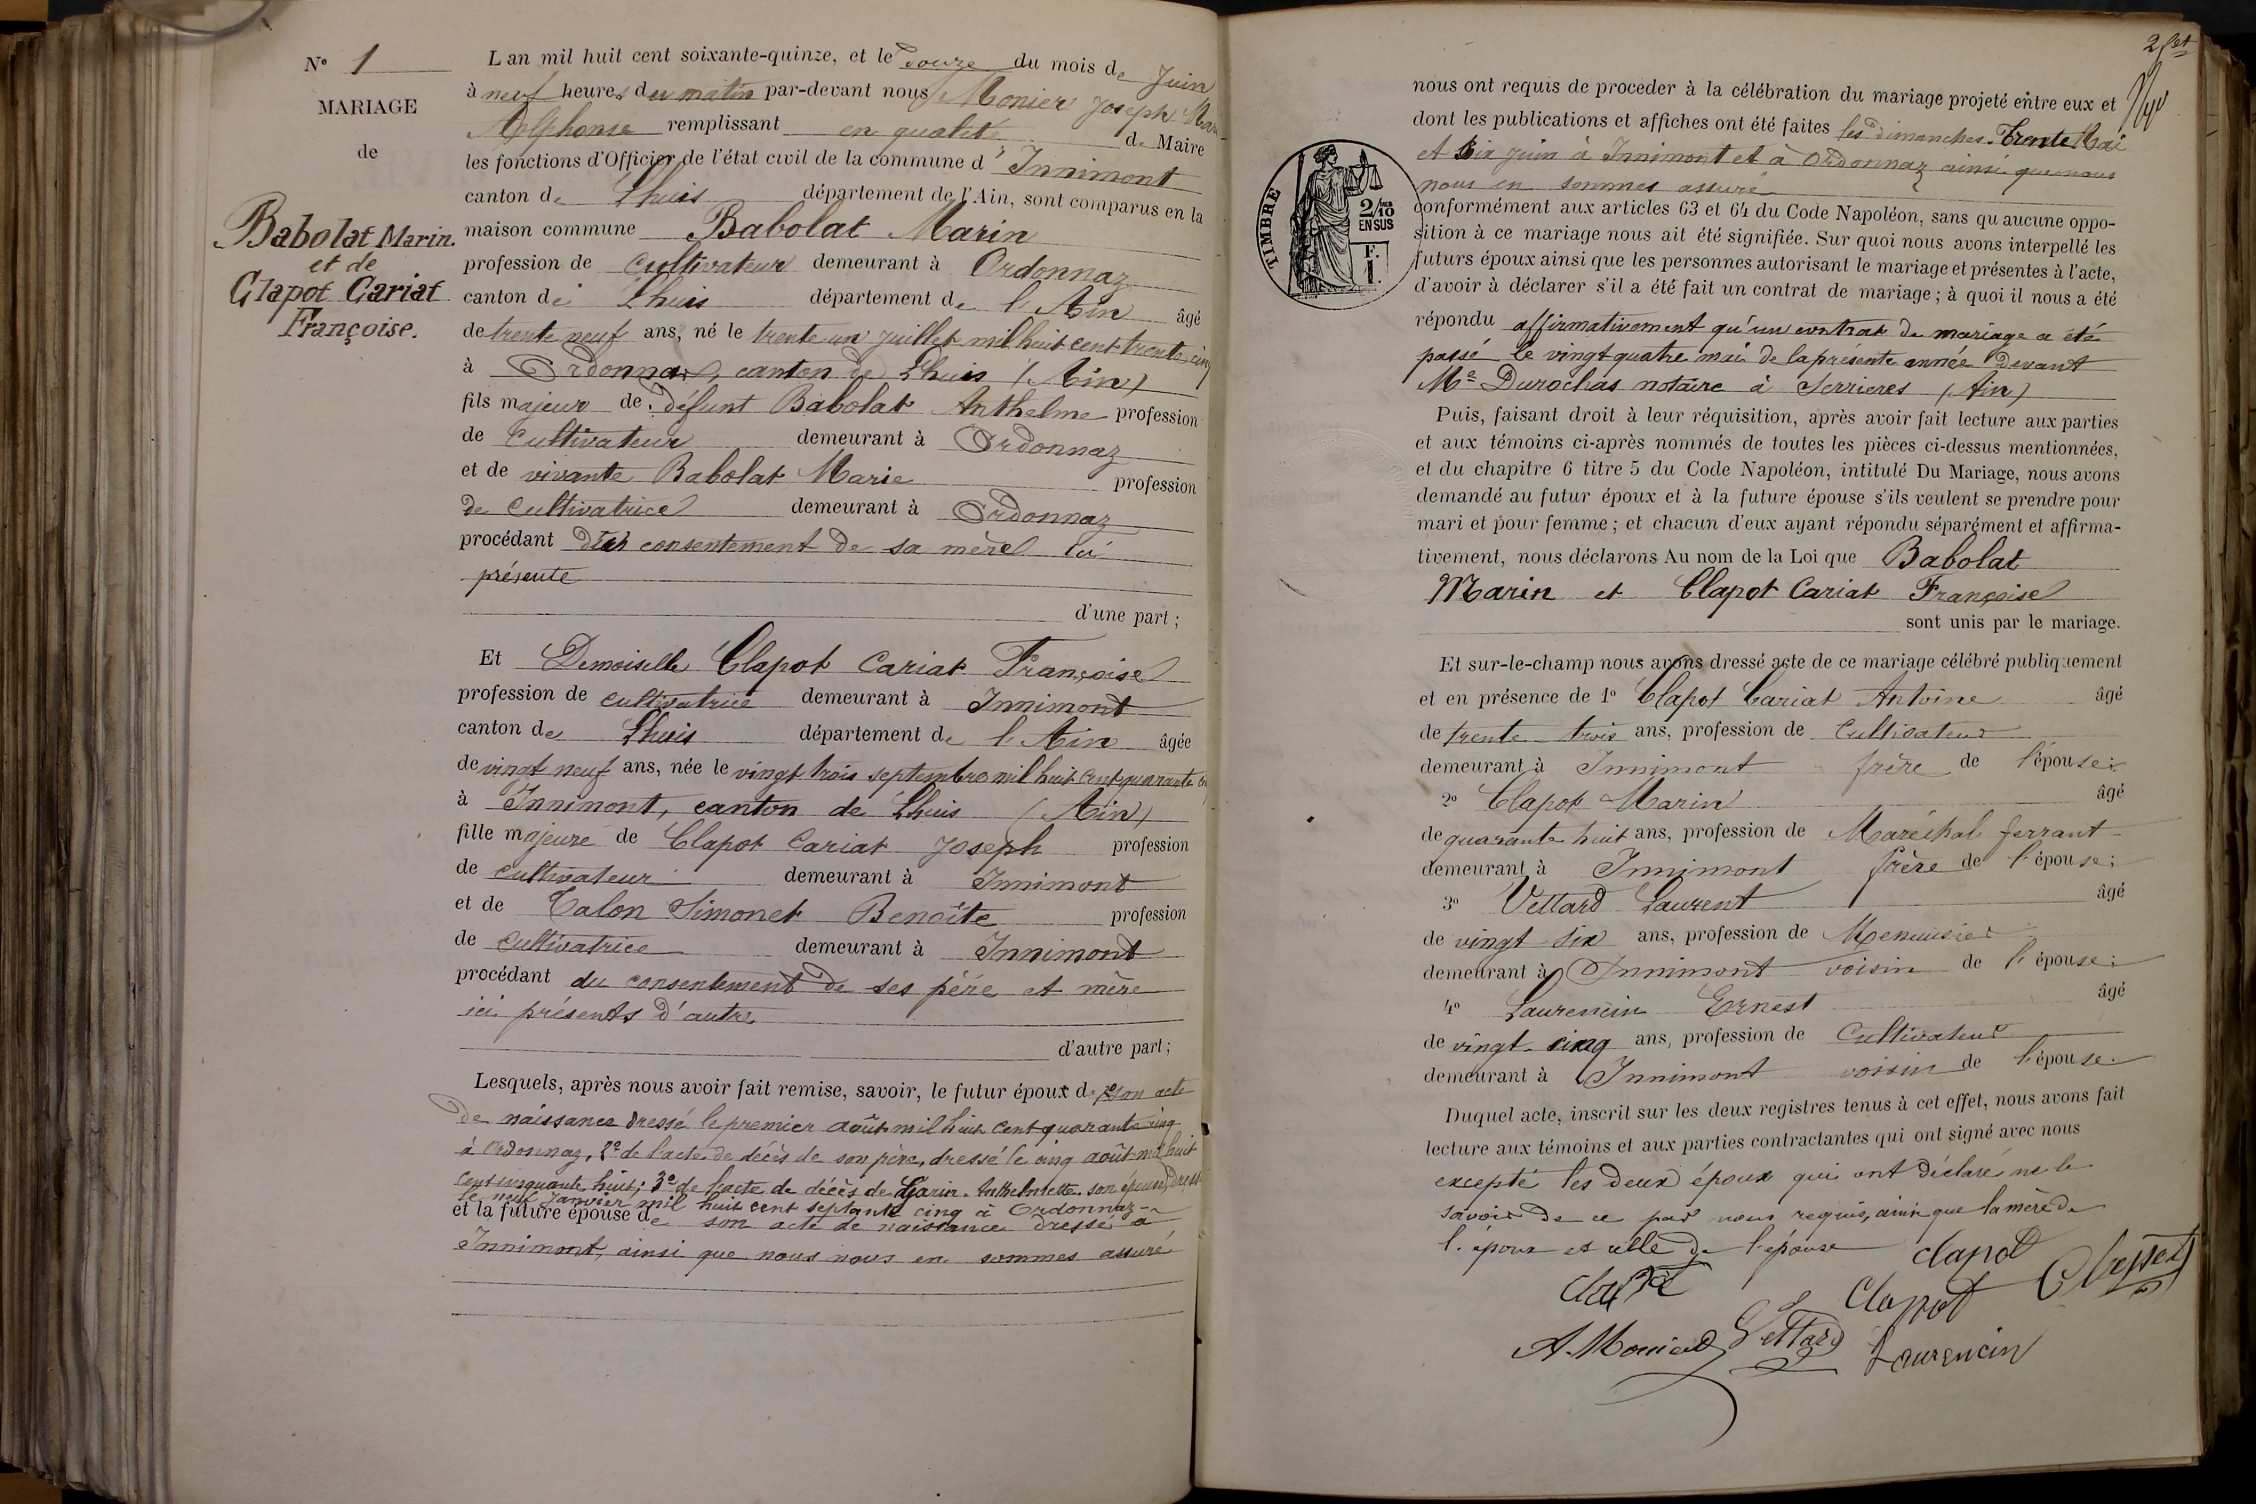 N° 1
MARIAGE
de
Babolat Marin.
et de
Clapot Cariat
Françoise.
L'an mil huit cent soixante-quinze, et le douze du mois de Juin
à neuf heures du matin par-devant nous Monier Joseph
Alphonse remplissant en qualité de Maire
les fonctions d'Officier de l'état civil de la commune d' Innimont
canton de Lhuis département de l'Ain, sont comparus en la
maison commune Babolat Marin
profession de cultivateur demeurant à Ordonnaz
canton de Lhuis département de l'Ain âgé
de trente neuf ans, né le trente un juillet mil huit cent trente cinq
à Ordonnaz, canton de Lhuis (Ain)
fils majeur de défunt Babolat Anthelme profession
de cultivateur demeurant à Ordonnaz
et de vivante Babolat Marie profession
de cultivatrice demeurant à Ordonnaz
procédant du consentement de sa mère ici
présente
d'une part ;
Et Demoiselle Clapot Cariat Françoise
profession de cultivatrice demeurant à Innimont
canton de Lhuis département de l'Ain âgée
de vingt neuf ans, née le vingt trois septembre mil huit cent quarante
à Innimont, canton de Lhuis (Ain)
fille majeure de Clapot Cariat Joseph profession
de cultivateur demeurant à Innimont
et de Talon Simonet Benoîte profession
de cultivatrice demeurant à Innimont
procédant du consentement de ses père et mère
ici présents d'autre
d'autre part ;
Lesquels, après nous avoir fait remise, savoir, le futur époux de son acte
de naissance dressé le premier août mil huit cent quarante cinq
à Ordonnaz, 2° de l'acte de décès de son père, dressé le cinq août mil huit
cent cinquante huit; 3° de l'acte de décès de Garin Anthelmette son épouse, dressé
le neuf Janvier mil huit cent septante cinq à Ordonnaz
et la future épouse de son acte de naissance dressé à
Innimont, ainsi que nous nous en sommes assuré
nous ont requis de procéder à la célébration du mariage projeté entre eux et
dont les publications et affiches ont été faites les dimanches Trente Mai
et Six juin à Innimont et à Ordonnaz ainsi que nous
nous en sommes assuré
TIMBRE
2/10 EN SUS
F. 1.
conformément aux articles 63 et 64 du Code Napoléon, sans qu'aucune oppo-
sition à ce mariage nous ait été signifiée. Sur quoi nous avons interpellé les
futurs époux ainsi que les personnes autorisant le mariage et présentes à l'acte,
d'avoir à déclarer s'il a été fait un contrat de mariage ; à quoi il nous a été
répondu affirmativement qu'un contrat de mariage a été
passé le vingt quatre mai de la présente année devant
Me Durochas notaire à Serrieres (Ain)
Puis, faisant droit à leur réquisition, après avoir fait lecture aux parties
et aux témoins ci-après nommés de toutes les pièces ci-dessus mentionnées,
et du chapitre 6 titre 5 du Code Napoléon, intitulé Du Mariage, nous avons
demandé au futur époux et à la future épouse s'ils veulent se prendre pour
mari et pour femme ; et chacun d'eux ayant répondu séparément et affirma-
tivement, nous déclarons Au nom de la Loi que Babolat
Marin et Clapot Cariat Françoise
sont unis par le mariage.
Et sur-le-champ nous avons dressé acte de ce mariage célébré publiquement
et en présence de 1° Clapot Cariat Antoine âgé
de trente trois ans, profession de Cultivateur
demeurant à Innimont frère de l'épouse;
2° Clapot Marin âgé
de quarante huit ans, profession de Maréchal ferrant
demeurant à Innimont frère de l'épouse;
3° Vettard Laurent âgé
de vingt six ans, profession de Menuisier
demeurant à Innimont voisin de l'épouse;
4° Laurencin Ernest âgé
de vingt cinq ans, profession de Cultivateur
demeurant à Innimont voisin de l'épouse.
Duquel acte, inscrit sur les deux registres tenus à cet effet, nous avons fait
lecture aux témoins et aux parties contractantes qui ont signé avec nous
excepté les deux époux qui ont déclaré ne le
savoir de ce par nous requis, ainsi que la mère de
l'époux et celle de l'épouse
Clapot
Clapot
Clapot
A. Monier
Vettard
Laurencin